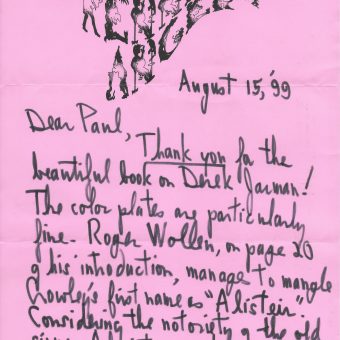 August 15, '99
Dear Paul,
Thank you for the
beautiful book on Derek Jarman!
The color plates are particularly
fine. Roger Wollen, on page 20
of his introduction, manage to mangle
Crowley's first name as "Alistein".
Considering the notoriety of the old